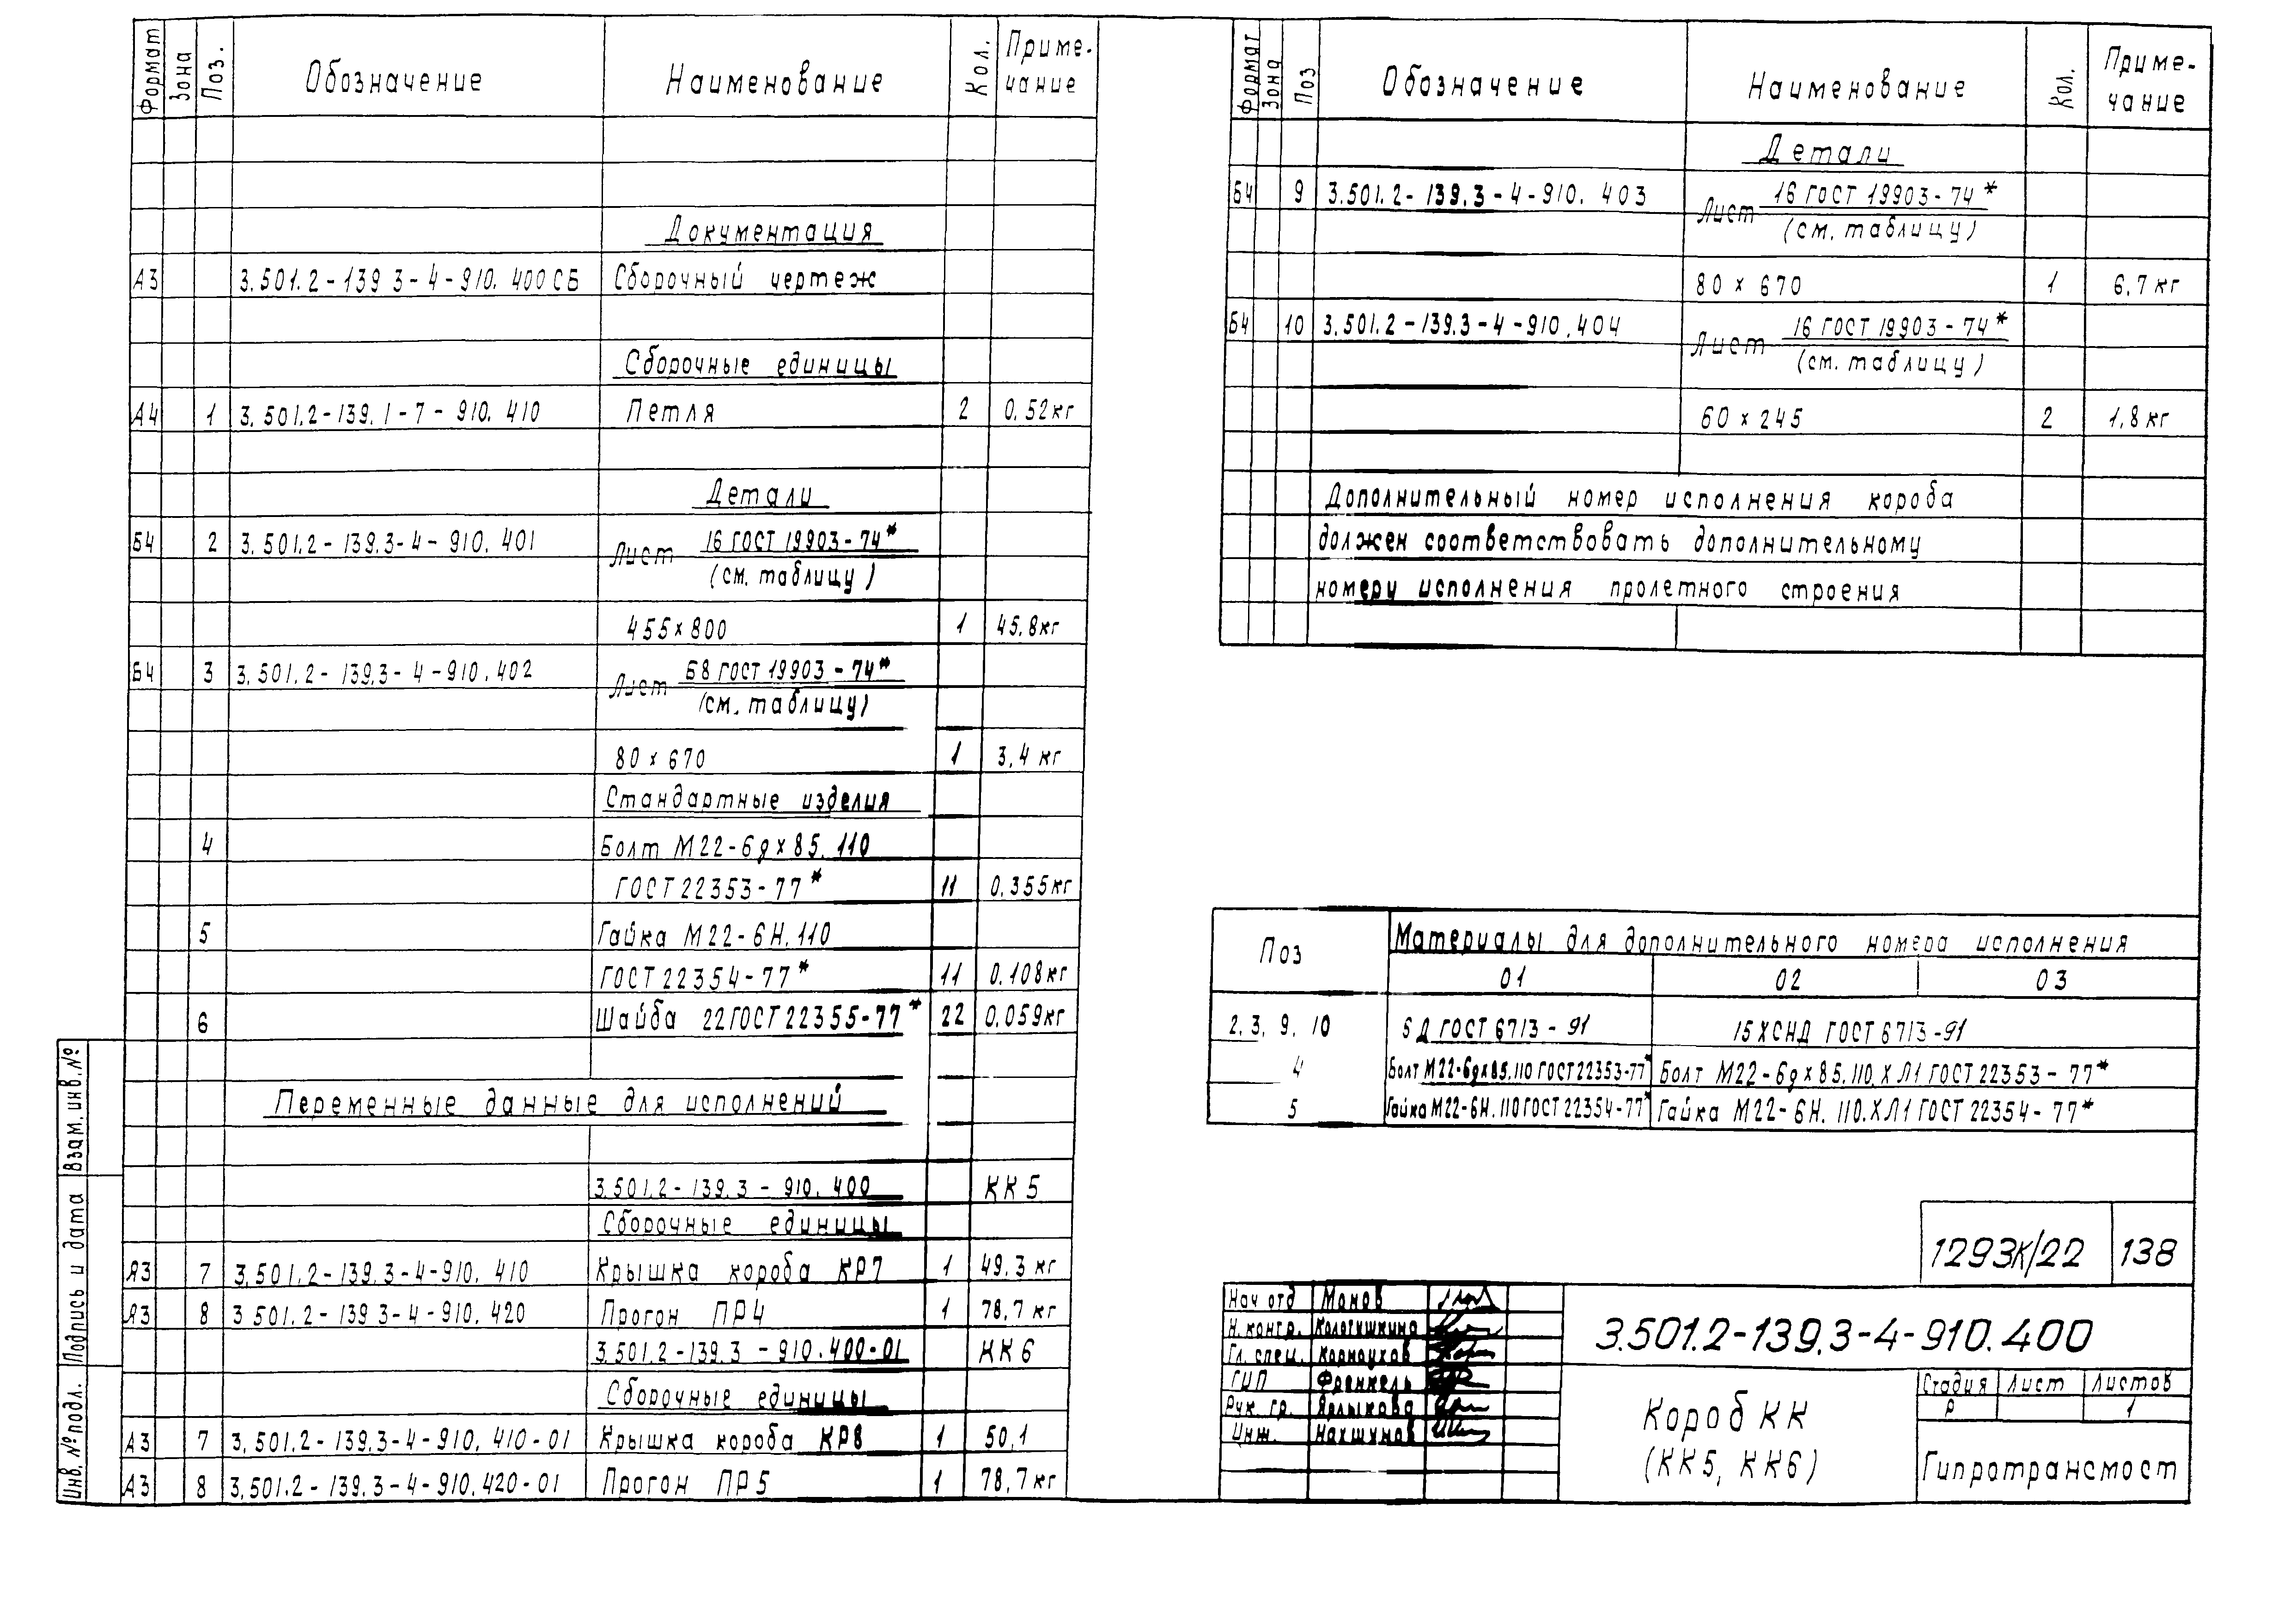 Формат Зона Поз. Обозначение Наименование Кол. Приме-
чание
Документация
А3 3.501.2-139 3-4-910.400СБ Сборочный чертеж
Сборочные единицы
А4 1 3.501.2-139.1-7-910.410 Петля 2 0,52кг
Детали
Б4 2 3.501.2-139.3-4-910.401 Лист 16 ГОСТ 19903-74*
(см. таблицу)
455×800 1 45,8кг
Б4 3 3.501.2-139.3-4-910.402 Лист Б8 ГОСТ 19903-74*
(см. таблицу)
80×670 1 3,4 кг
Стандартные изделия
4 Болт М22-6g×85.110
ГОСТ 22353-77* 11 0,355кг
5 Гайка М22-6Н.110
ГОСТ 22354-77* 11 0.108кг
6 Шайба 22ГОСТ22355-77* 22 0,059кг
Переменные данные для исполнений
3.501.2-139.3-910.400 КК5
Сборочные единицы
А3 7 3.501.2-139.3-4-910.410 Крышка короба КР7 1 49,3 кг
А3 8 3 501.2-139 3-4-910.420 Прогон ПР4 1 78,7 кг
3.501.2-139.3-910.400-01 КК6
Сборочные единицы
А3 7 3.501.2-139.3-4-910.410-01 Крышка короба КР8 1 50,1
А3 8 3.501.2-139.3-4-910.420-01 Прогон ПР5 1 78,7кг
Взам. инв. №
Подпись и дата
Инв. № подл.
Формат Зона Поз Обозначение Наименование Кол. Приме-
чание
Детали
Б4 9 3.501.2-139.3-4-910.403 Лист 16 ГОСТ 19903-74*
(см. таблицу)
80×670 1 6,7кг
Б4 10 3.501.2-139.3-4-910.404 Лист 16 ГОСТ 19903-74*
(см. таблицу)
60×245 2 1,8кг
Дополнительный номер исполнения короба
должен соответствовать дополнительному
номеру исполнения пролетного строения
Поз Материалы для дополнительного номера исполнения
01 02 03
2, 3, 9, 10 5Д ГОСТ 6713-91 15ХСНД ГОСТ 6713-91
4 Болт М22-6g×85.110 ГОСТ22353-77* Болт М22-6g×85.110.ХЛ1 ГОСТ 22353-77*
5 Гайка М22-6Н.110ГОСТ 22354-77* Гайка М22-6Н.110.ХЛ1 ГОСТ 22354-77*
1293К/22 138
Нач отд Монов
Н. контр. Колотушкина
Гл. спец. Корноухов
ГИП Френкель
Рук. гр. Ярлыкова
Инж. Нахшунов
3.501.2-139.3-4-910.400
Короб КК
(КК5, КК6)
Стадия Лист Листов
Р 1
Гипротрансмост